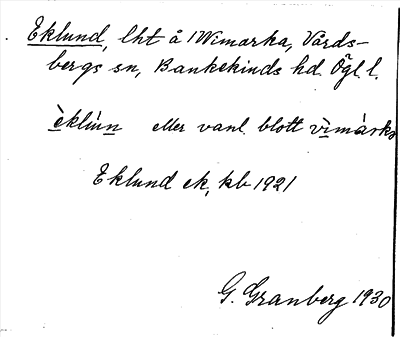 Eklund, lht å Wimarka, Vårds-
bergs sn, Bankekinds hd. Ögl l.
èklún eller vanl. blott vìmárka
Eklund ek, kb 1921
G. Granberg 1930